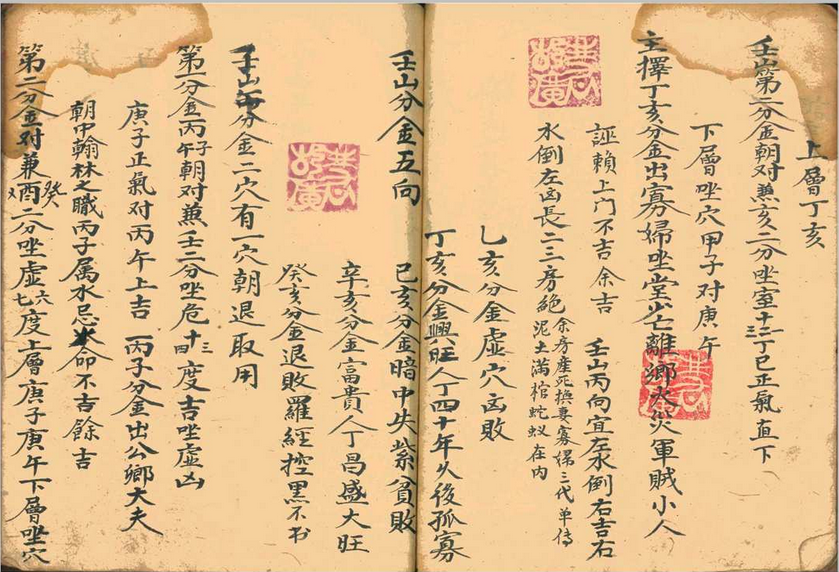 上層丁亥
壬山第二分金朝对兼亥二分坐室十二三丁巳正氣直下
下層坐穴甲子对庚午
主擇丁亥分金出寡婦坐堂少亡離鄉火災軍賊小人
誣賴上门不吉余吉
壬山丙向宜左水倒右吉右
水倒左凶長二三房絶
余房產死撫妻寡婦三代单傳
泥土满棺蛇蚁在内
乙亥分金虛穴凶敗
丁亥分金興旺人丁四十年火後孤寡
壬山分金五向
己亥分金暗中失紫貧敗
辛亥分金富貴人丁昌盛大旺
癸亥分金退敗羅經控黑不书
壬山分金二穴有一穴朝退取用
第一分金丙午子朝对兼壬二分坐危十三四度吉坐虛凶
庚子正氣对丙午上吉
丙子分金出公卿大夫
朝中翰林之職丙子属水忌火命不吉餘吉
第二分金对兼癸二分坐虛六七度上層庚子庚午下層坐穴